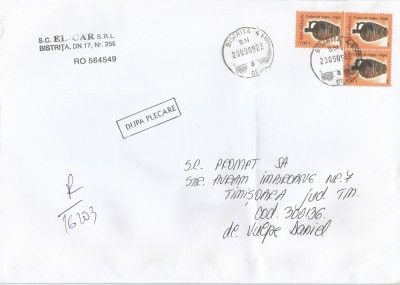 S.C. EL-CAR S.R.L
BISTRIȚA, DN 17, Nr. 256
RO 564549
BISTRIȚA
BN
23090922
a
DUPA PLECARE
R
16203
S.C. PROMPT SA
STR. AVRAM IMBROANE NR. 7
TIMIȘOARA / Jud. TM.
Cod. 300136.
dr. Vulpe Daniel